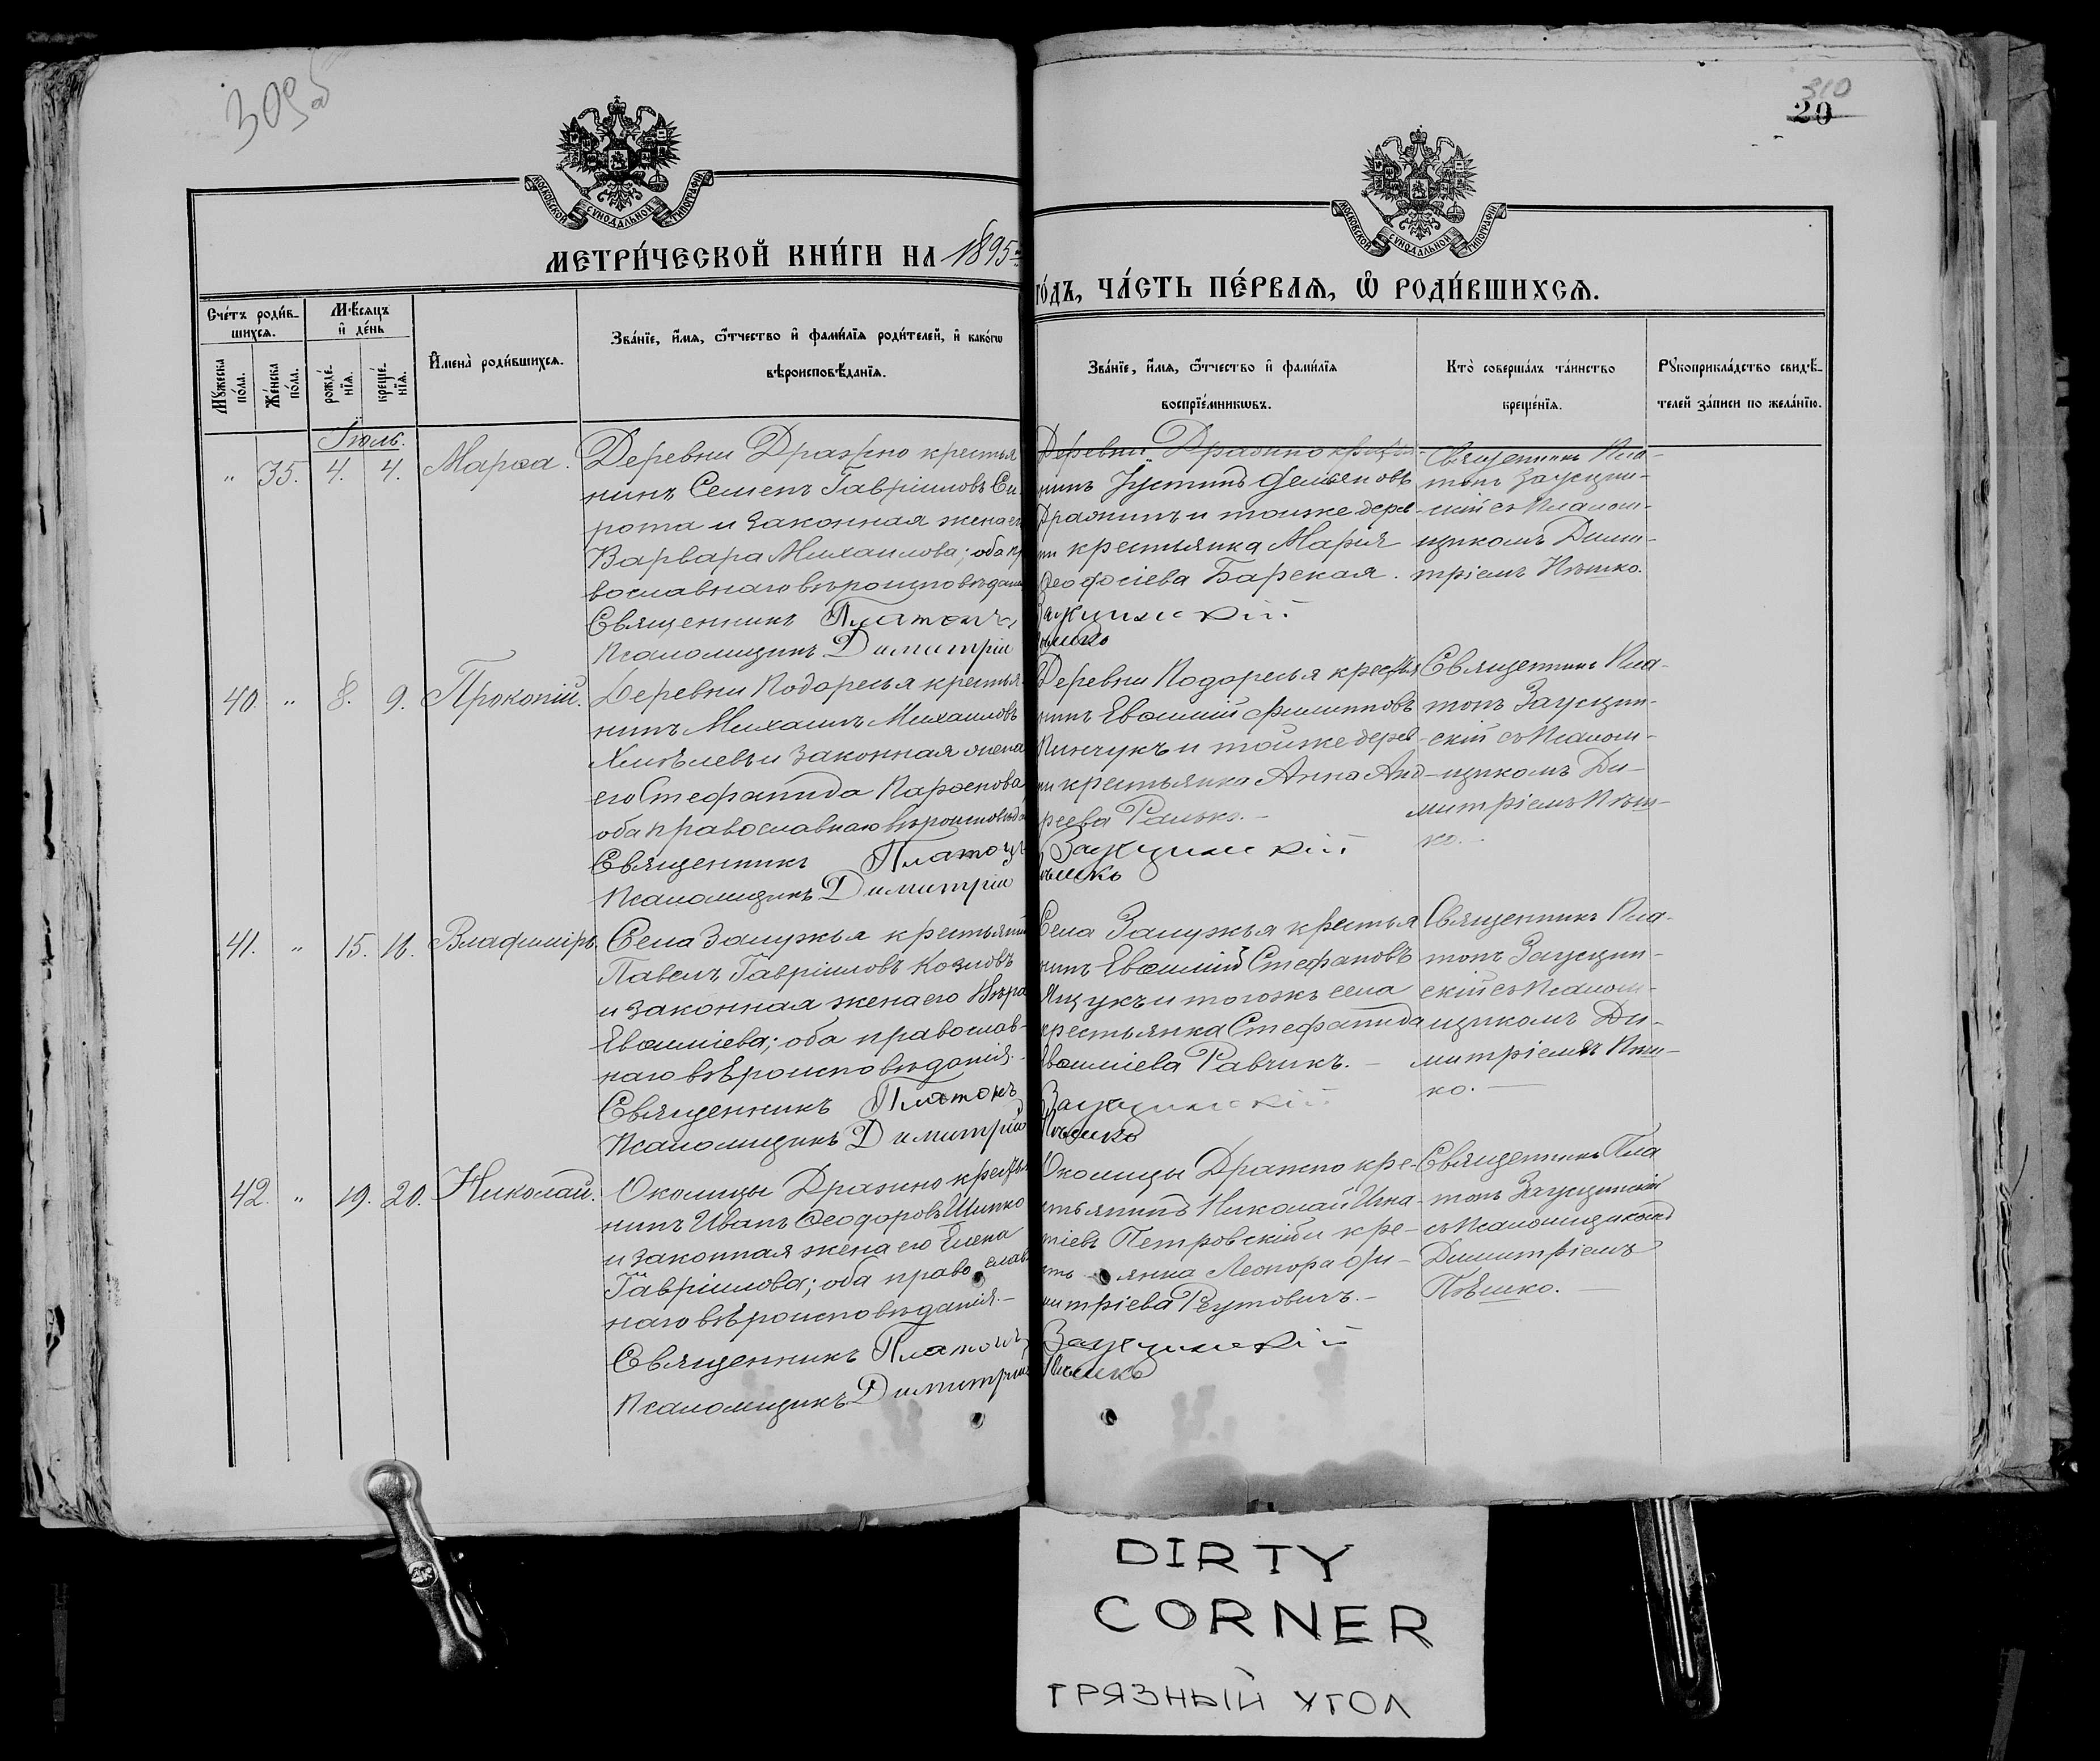 310
20
МОСКОВСКОЙ СѴНОДАЛЬНОЙ ТИПОГРАФІИ
МОСКОВСКОЙ СѴНОДАЛЬНОЙ ТИПОГРАФІИ
МЕТРИ́ЧЕСКОЙ КНИ́ГИ НА 1895
ГО́ДЪ, ЧА́СТЬ ПЕ́РВАѦ, Ѽ РОДИ́ВШИХСѦ.
Сче́тъ роди́в-
шихсѧ.
Мꙋ́жеска по́ла.
Же́нска по́ла.
Мѣ́сѧцъ
и҆ де́нь
рожде́-
нїѧ.
креще́-
нїѧ.
И҆мена̀ роди́вшихсѧ.
Зва́нїе, и҆́мѧ, ѻ҆́тчество и҆ фами́лїѧ роди́телей, и҆ како́гѡ
вѣроисповѣ́данїѧ.
Зва́нїе, и҆́мѧ, ѻ҆́тчество и҆ фами́лїѧ
воспрїе́мникѡвъ.
Кто̀ соверша́лъ та́инство
креще́нїѧ.
Рꙋкоприкла́дство свидѣ́-
телей за́писи по жела́нїю.
Іюль.
" 35. 4. 4. Марѳа.
Деревни Дражно крестья
нинъ Семенъ Гавріиловъ Си-
рота и законная жена ег
Варвара Михаилова; оба пр
вославнаго вѣроисповѣдан
Священникъ Платонъ
Псаломщикъ Димитрій
Деревни Дражно крестья-
нинъ Іустинъ Семеновъ
Дражинъ и тоиже дерев-
ни крестьянка Марія
Ѳеодосіева Барская.
Заущинскій
Пѣшко
Священникъ Пла-
тонъ Заущин-
скій съ Псалом-
щикомъ Дими-
тріемъ Пѣшко.
40. " 8. 9. Прокопій.
Деревни Подоресья крестья-
нинъ Михаилъ Михаиловъ
Хмѣлевъ и законная жена
его Стефанида Парѳенова,
оба православнаго вѣроисповѣда
Священникъ Платонъ
Псаломщикъ Димитрій
Деревни Подоресья крестья
нинъ Евѳимій Филипповъ
Пинчукъ и тоиже дерев-
ни крестьянка Анна Анд-
реева Ралько.
Заущинскій
Пѣшко
Священникъ Пла-
тонъ Заущин-
скій съ Псалом-
щикомъ Ди-
митріемъ Пѣш-
ко.
41. " 15. 16. Владиміръ.
Села Залужья крестьянин
Павелъ Гавріиловъ Козловъ
и законная жена его Вѣра
Евѳиміева; оба православ-
наго вѣроисповѣданія.
Священникъ Платонъ
Псаломщикъ Димитрій
Села Залужья крестья
нинъ Евѳимій Стефановъ
Ящукъ и тогожъ села
крестьянка Стефанида
Евѳиміева Равчикъ.
Заущинскій
Пѣшко
Священникъ Пла-
тонъ Заущин-
скій съ Псалом-
щикомъ Ди-
митріемъ Пѣш-
ко.
42. " 19. 20. Николай.
Околицы Дражно кресть
нинъ Иванъ Ѳеодоровъ Шипко
и законная жена его Елена
Гавріилова; оба православ
наго вѣроисповѣданія.
Священникъ Платонъ
Псаломщикъ Димитрій
Околицы Дражно кре-
стьянинъ Николай Игна-
тіевъ Петровскій и кре-
стьянка Леонора Ди-
митріева Реутовичъ.
Заущинскій
Пѣшко
Священникъ Пла
тонъ Заущинскій
съ Псаломщикомъ
Димитріемъ
Пѣшко.
DIRTY
CORNER
ГРЯЗНЫЙ УГОЛ